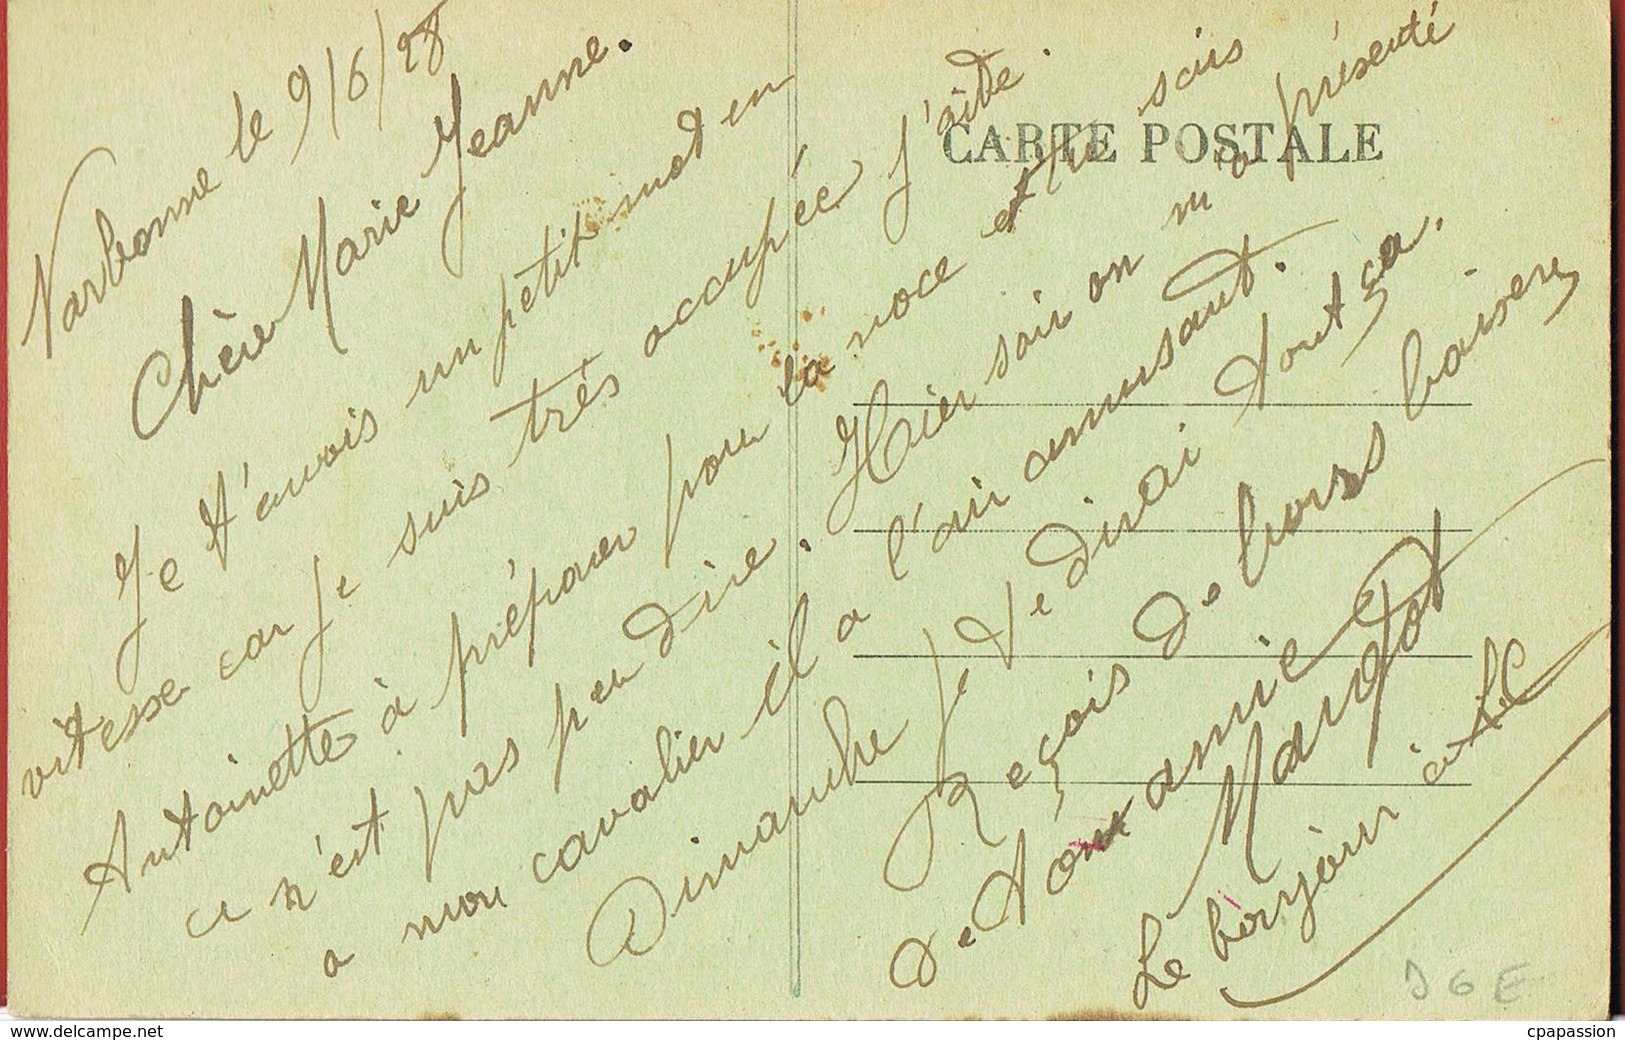 Narbonne le 9/6/28
Chère Marie Jeanne.
Je t'envois un petit mot en
vitesse car je suis très occupée j'aide
Antoinette à préparer pour la noce et tu sais
ce n'est pas peu dire. Hier soir on m'a présenté
a mon cavalier il a l'air amusant.
Dimanche je te dirai tout ça.
Reçois de bons baisers
de ton amie
Margot
Le bonjour à
CARTE POSTALE
J G E
www.delcampe.net
cpapassion